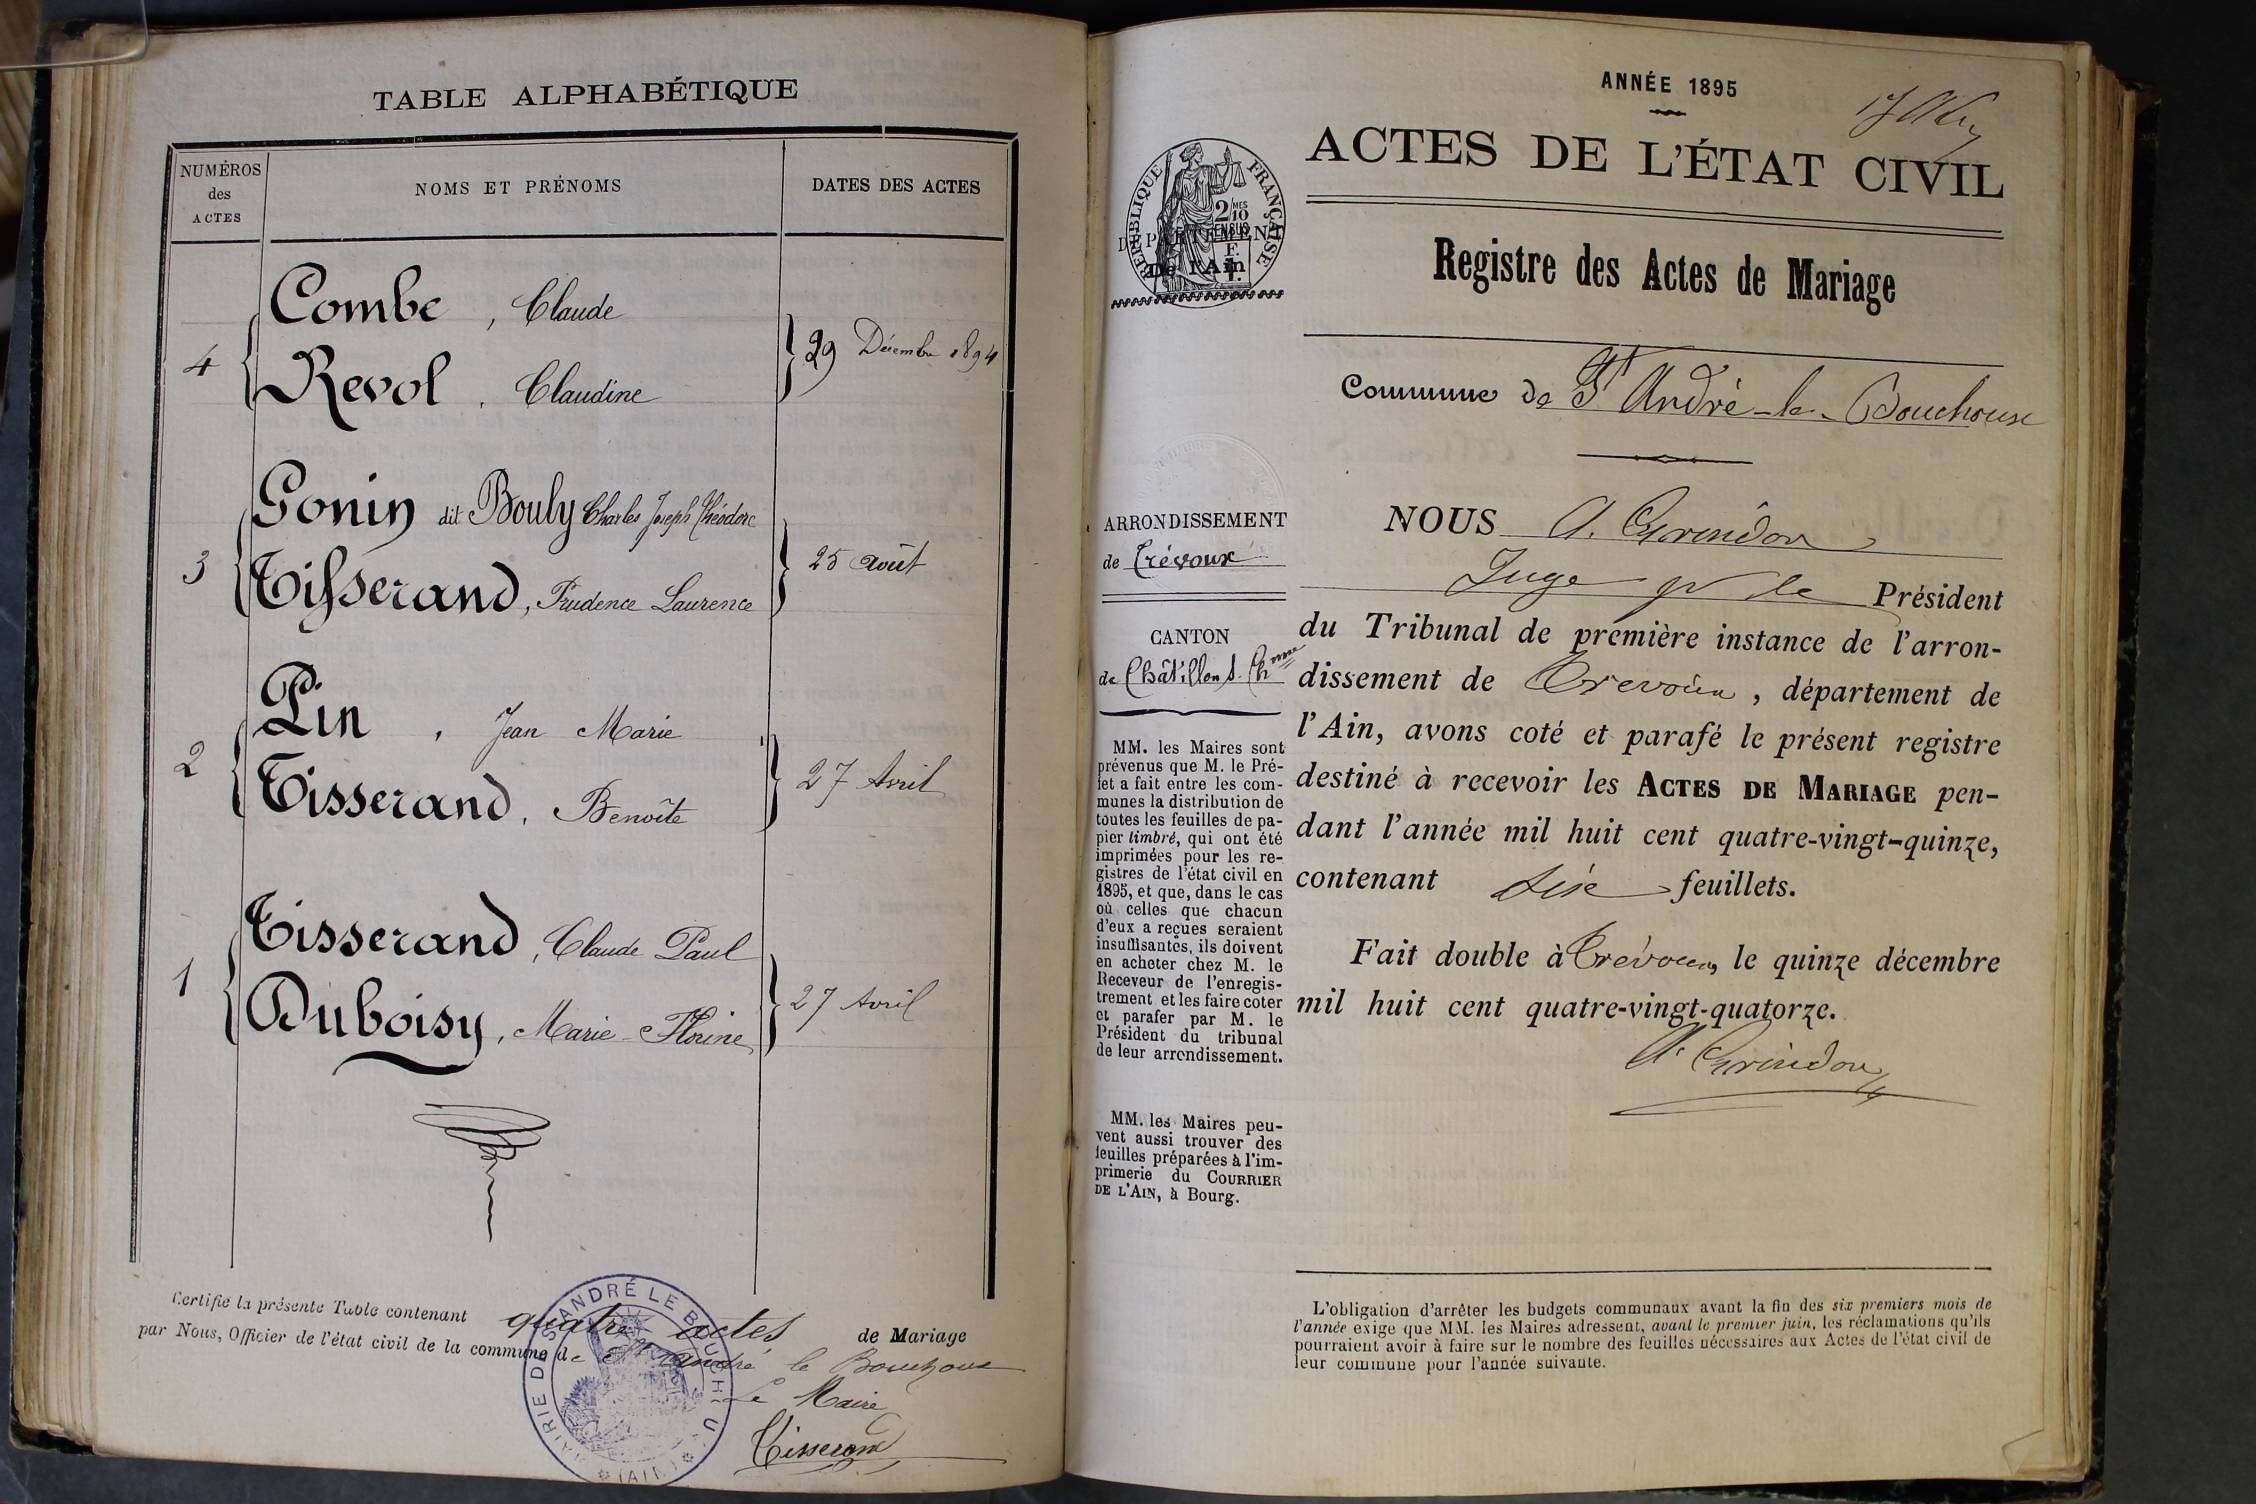 TABLE ALPHABÉTIQUE
NUMÉROS
des
ACTES
NOMS ET PRÉNOMS
DATES DES ACTES
Combe, Claude
4
29 Décembre 1894
Revol, Claudine
Gonin dit Bouly Charles Joseph Théodore
3
25 août
Tisserand, Prudence Laurence
Pin, Jean Marie
2
27 Avril
Tisserand, Benoîte
Tisserand, Claude Paul
1
27 Avril
Duboisy, Marie-Florine
Certifié la présente Table contenant quatre actes de Mariage
par Nous, Officier de l'état civil de la commune de St André le Bouchoux
Le Maire
Tisserand
MAIRIE DE ST ANDRÉ LE BOUCHOUX
(AIN)
ANNÉE 1895
ACTES DE L'ÉTAT CIVIL
RÉPUBLIQUE FRANÇAISE
2/10
MES
EN SUS
DÉPARTEMENT
De l'Ain
Registre des Actes de Mariage
Commune de St André-le-Bouchoux
ARRONDISSEMENT
de Trévoux
CANTON
de Châtillon s. Chnne
MM. les Maires sont
prévenus que M. le Pré-
fet a fait entre les com-
munes la distribution de
toutes les feuilles de pa-
pier timbré, qui ont été
imprimées pour les re-
gistres de l'état civil en
1895, et que, dans le cas
où celles que chacun
d'eux a reçues seraient
insuffisantes, ils doivent
en acheter chez M. le
Receveur de l'enregis-
trement et les faire coter
et parafer par M. le
Président du tribunal
de leur arrondissement.
MM. les Maires peu-
vent aussi trouver des
feuilles préparées à l'im-
primerie du COURRIER
DE L'AIN, à Bourg.
NOUS A. Grindon
Juge pr le Président
du Tribunal de première instance de l'arron-
dissement de Trévoux, département de
l'Ain, avons coté et parafé le présent registre
destiné à recevoir les ACTES DE MARIAGE pen-
dant l'année mil huit cent quatre-vingt-quinze,
contenant six feuillets.
Fait double à Trévoux, le quinze décembre
mil huit cent quatre-vingt-quatorze.
A. Grindon
L'obligation d'arrêter les budgets communaux avant la fin des six premiers mois de
l'année exige que MM. les Maires adressent, avant le premier juin, les réclamations qu'ils
pourraient avoir à faire sur le nombre des feuilles nécessaires aux Actes de l'état civil de
leur commune pour l'année suivante.